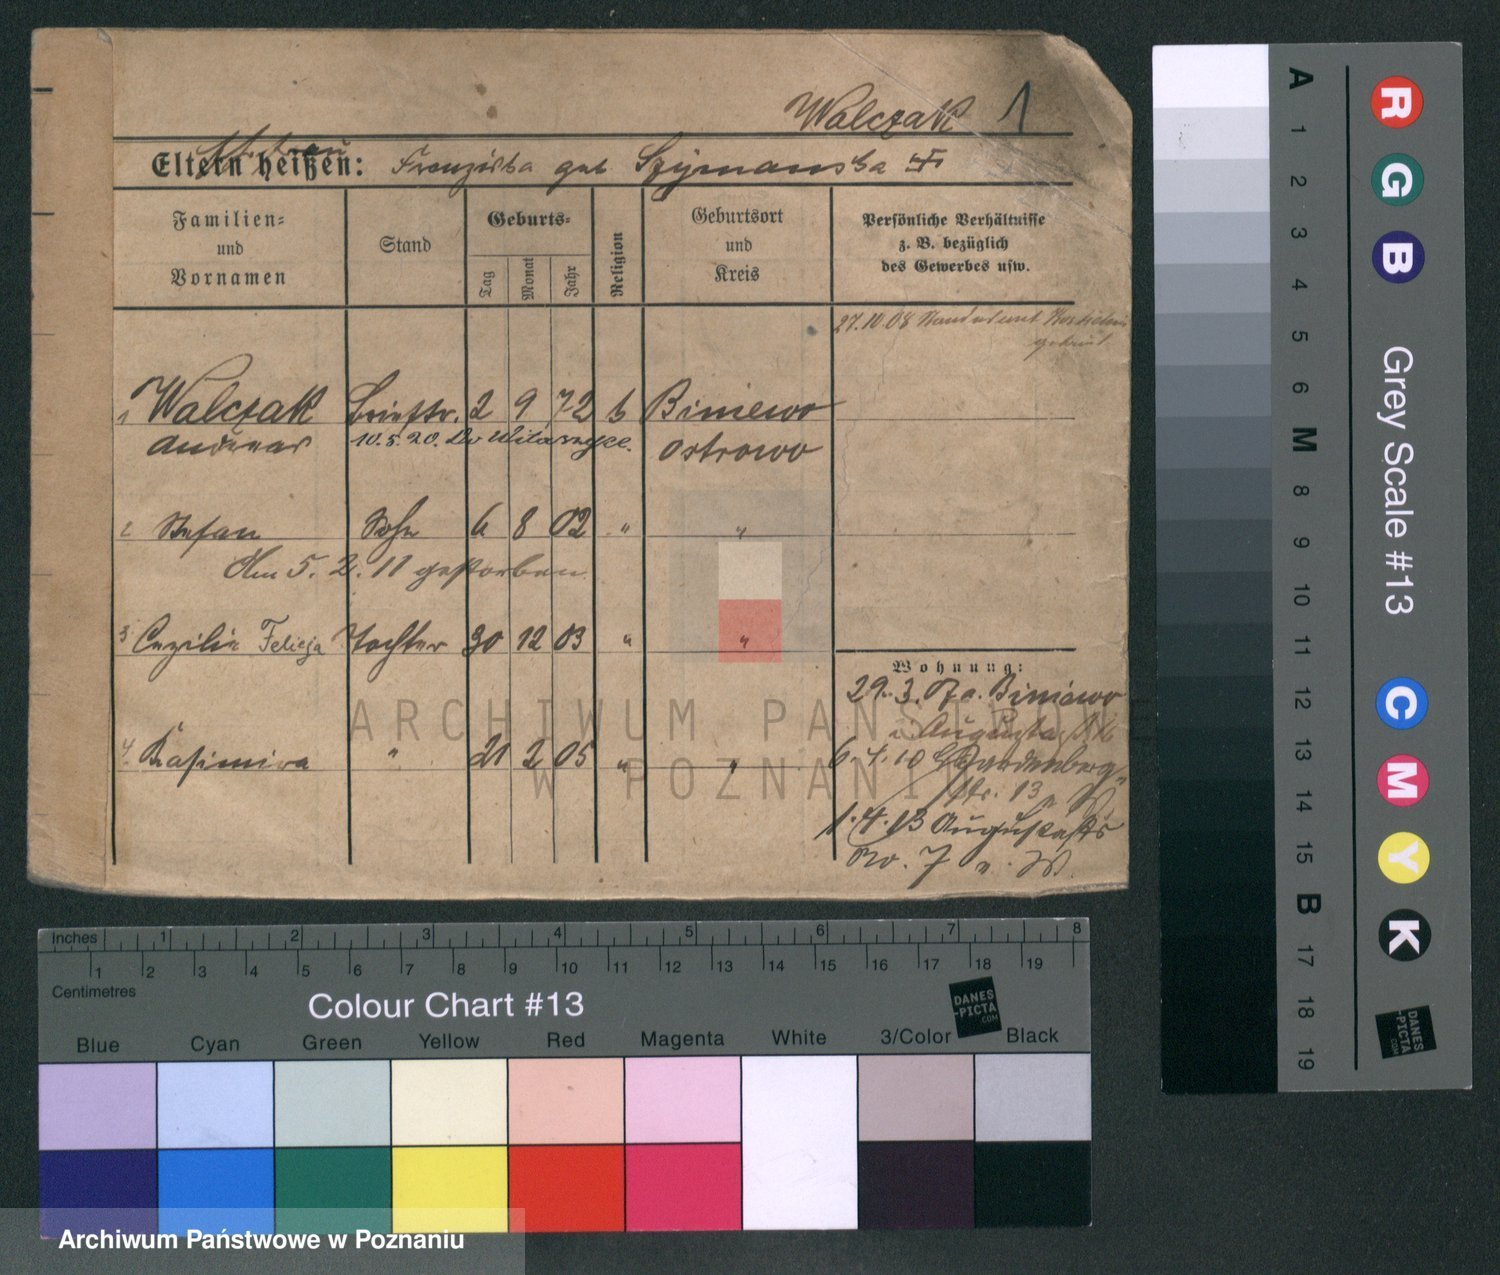 Walczak 1
Eltern heißen: Franziska geb Szymanska
Familien=
und
Vornamen
Stand
Geburts=
Tag
Monat
Jahr
Religion
Geburtsort
und
Kreis
Persönliche Verhältnisse
z. B. bezüglich
des Gewerbes usw.
27.10.08
1 Walczak Brieftr. 2 9 72 k Biniewo
Andreas 10.5.20. Ostrowo
2 Stefan Sohn 6 8 02 " "
Am 5. 2. 11 gestorben.
3 Cezilie Felicja Tochter 30 12 03 " "
Wohnung:
29.3. Biniewo
4 Kasimira " 21 2 05 " "
6.4.10 Hardenberg
str. 13
1.4.13 Augustastr
No. 7
ARCHIWUM PAŃSTWOWE
W POZNANIU
A 1 2 3 4 5 6 M 8 9 10 11 12 13 14 15 B 17 18 19
R G B
Grey Scale #13
C M Y K
DANES
-PICTA
.COM
inches 1 2 3 4 5 6 7 8
1 2 3 4 5 6 7 8 9 10 11 12 13 14 15 16 17 18 19
Centimetres
Colour Chart #13
DANES
-PICTA
.COM
Blue Cyan Green Yellow Red Magenta White 3/Color Black
Archiwum Państwowe w Poznaniu